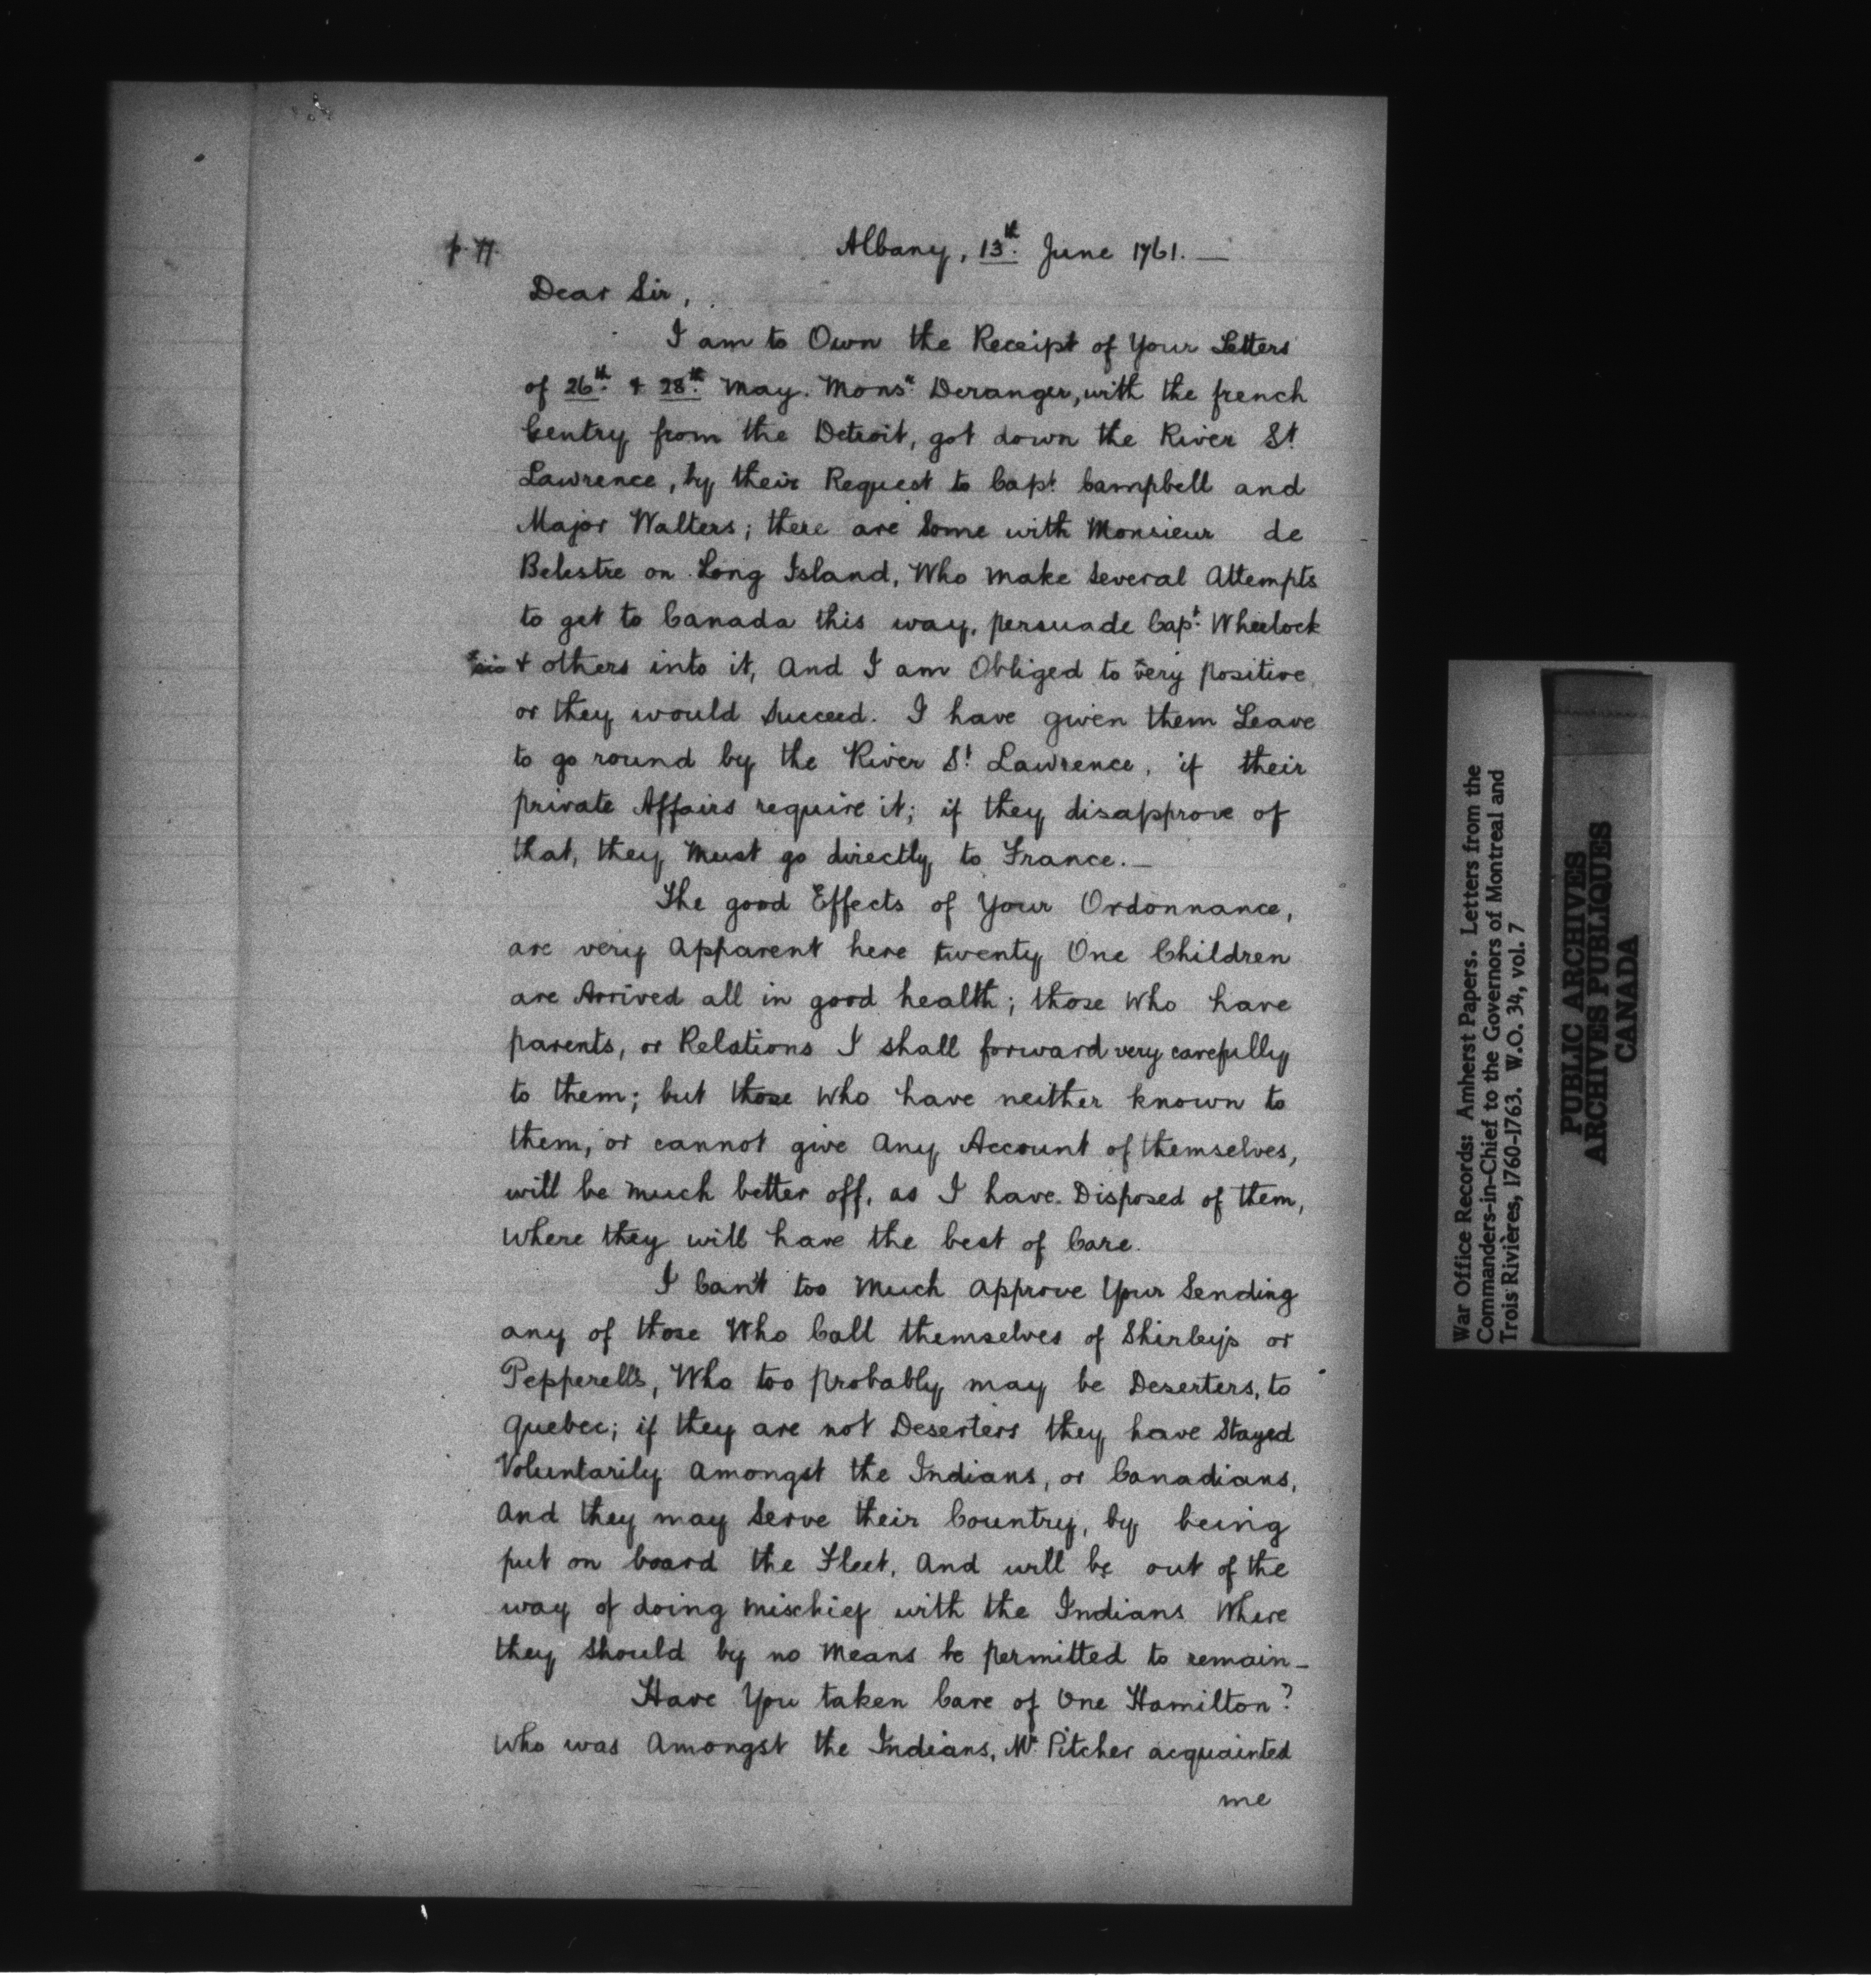 p. 77.
Albany, 13th. June 1761. —
Dear Sir,
I am to Own the Receipt of Your Letters
of 26th. & 28th. May. Monsr. Deranger, with the french
Gentry from the Detroit, got down the River St.
Lawrence, by their Request to Capt. Campbell and
Major Walters; there are Some with Monsieur de
Belestre on Long Island, Who make Several Attempts
to get to Canada this way, persuade Capt. Wheelock
*sic & others into it, And I am Obliged to *very positive
or they would Succeed. I have given them Leave
to go round by the River St. Lawrence, if their
private Affairs require it; if they disapprove of
that, they Must go directly to France. —
The good Effects of Your Ordonnance,
are very Apparent here twenty One Children
are Arrived all in good health; those Who have
parents, or Relations I shall forward very carefully
to them; but those Who have neither known to
them, or cannot give Any Account of themselves,
will be Much better off, as I have Disposed of them,
Where they will have the best of Care.
I Can't too Much Approve Your Sending
any of those Who Call themselves of Shirley's or
Pepperell's, Who too probably may be Deserters, to
Quebec; if they are not Deserters they have Stayed
Voluntarily Amongst the Indians, or Canadians,
And they may Serve their Country, by being
put on board the Fleet, And will be out of the
way of doing Mischief with the Indians Where
they Should by no Means be permitted to remain –
Have You taken Care of One Hamilton?
Who was Amongst the Indians, Mr. Pitcher acquainted
me
War Office Records: Amherst Papers. Letters from the
Commanders-in-Chief to the Governors of Montreal and
Trois Rivières, 1760-1763. W.O. 34, vol. 7
PUBLIC ARCHIVES
ARCHIVES PUBLIQUES
CANADA